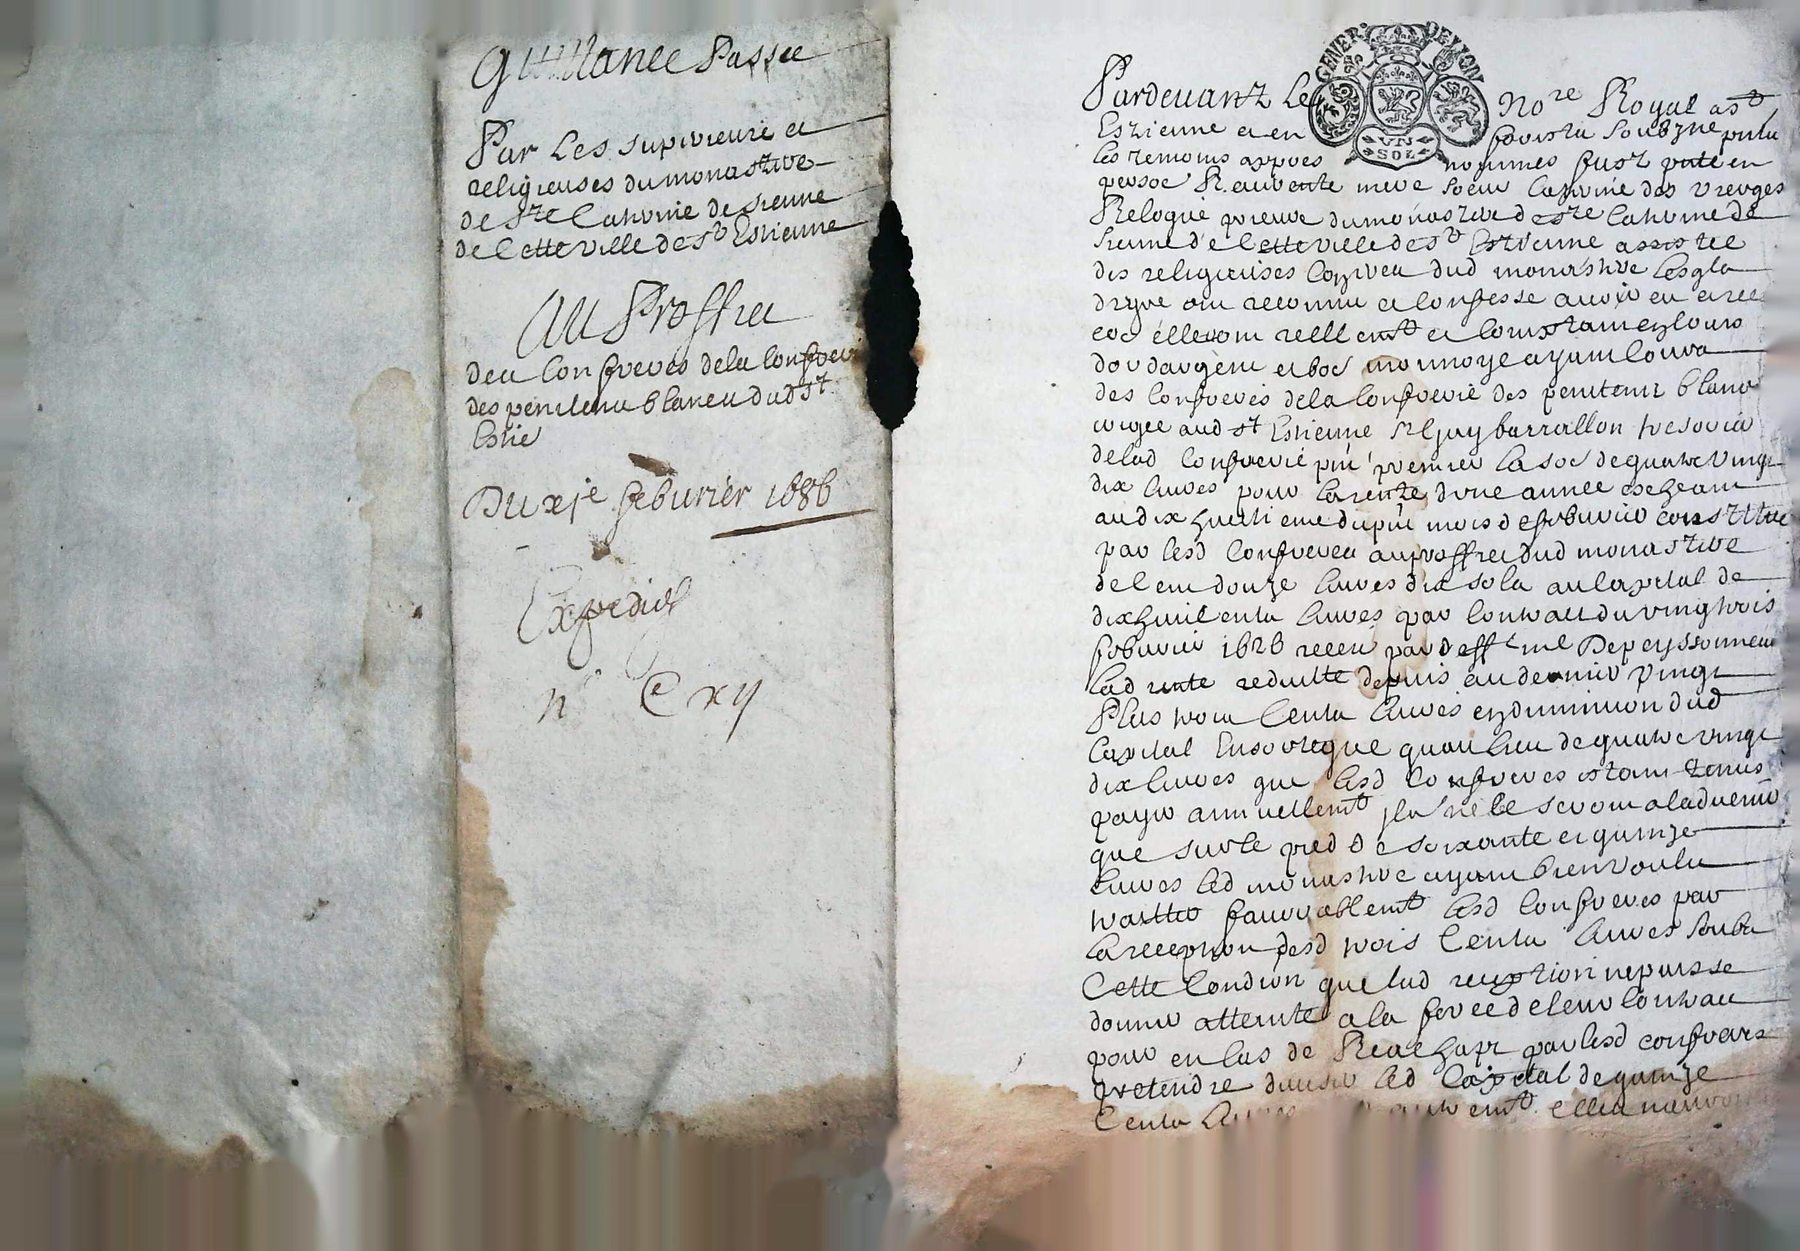 Quittance Passee
Par Les superieure et
religieuses du monastere
de Ste Catherine de sienne
de Cette ville de St Estienne
Au Proffict
deu Confreres dela Confreri
des penitentz blancu dud St
Estie
Du xje feburier 1686
Expedié
n° C xij
GENER. DE LYON
UN SOL
Pardeuant Le No.re Royal a St
Estienne et en forestz soubzne pntz
les temoins appres nommes fust pnte en
persoe R. euerente mere soeur Catherine des vierges
Relogue prieure du monastere de Ste Catherine de
sienne de Cette ville de St Estienne assistee
des religieuses dud monastere
ont reconnu et Confesse auoir eu et receu
reellemt et Comptamment en Louis
dor dargent et bone monnoye ayant Cours
des Confreres dela Confrerie des penitentz blancz
erigee aud St Estienne Sr Guy barrallon tresorier
delad Confrerie pnt premier la soe de quatre vingt
dix liures pour la rente dune annee escheant
au dix huictieme du pnt mois de feburier constitue
par lesd Confreres au proffict dud monastere
de Cent douze liures dix solz au Capital de
dix huict Centz liures par Contract du vingt trois
feburier 1626 receu par defft me Depeyssonneau
lad rente reduitte depuis au denier vingt
Plus trois Centz liures en diminuon dud
Capital Ensorteque quau lieu de quatre vingt
dix liures que lesd Confreres estant tenus
payer annuellemt ilz ne le seront a laduenir
que sur le pied de soixante et quinze
liures led monastere ayant bien voulu
traitter fauorablemt lesd Confreres par
la reception desd trois Centz liures soubz
Cette Condion que lad reception ne puisse
donner atteinte a la force de leur Contract
pour en Cas de Reachapt par lesd confreres
pretendre dauoir led Capital de quinze
Centz